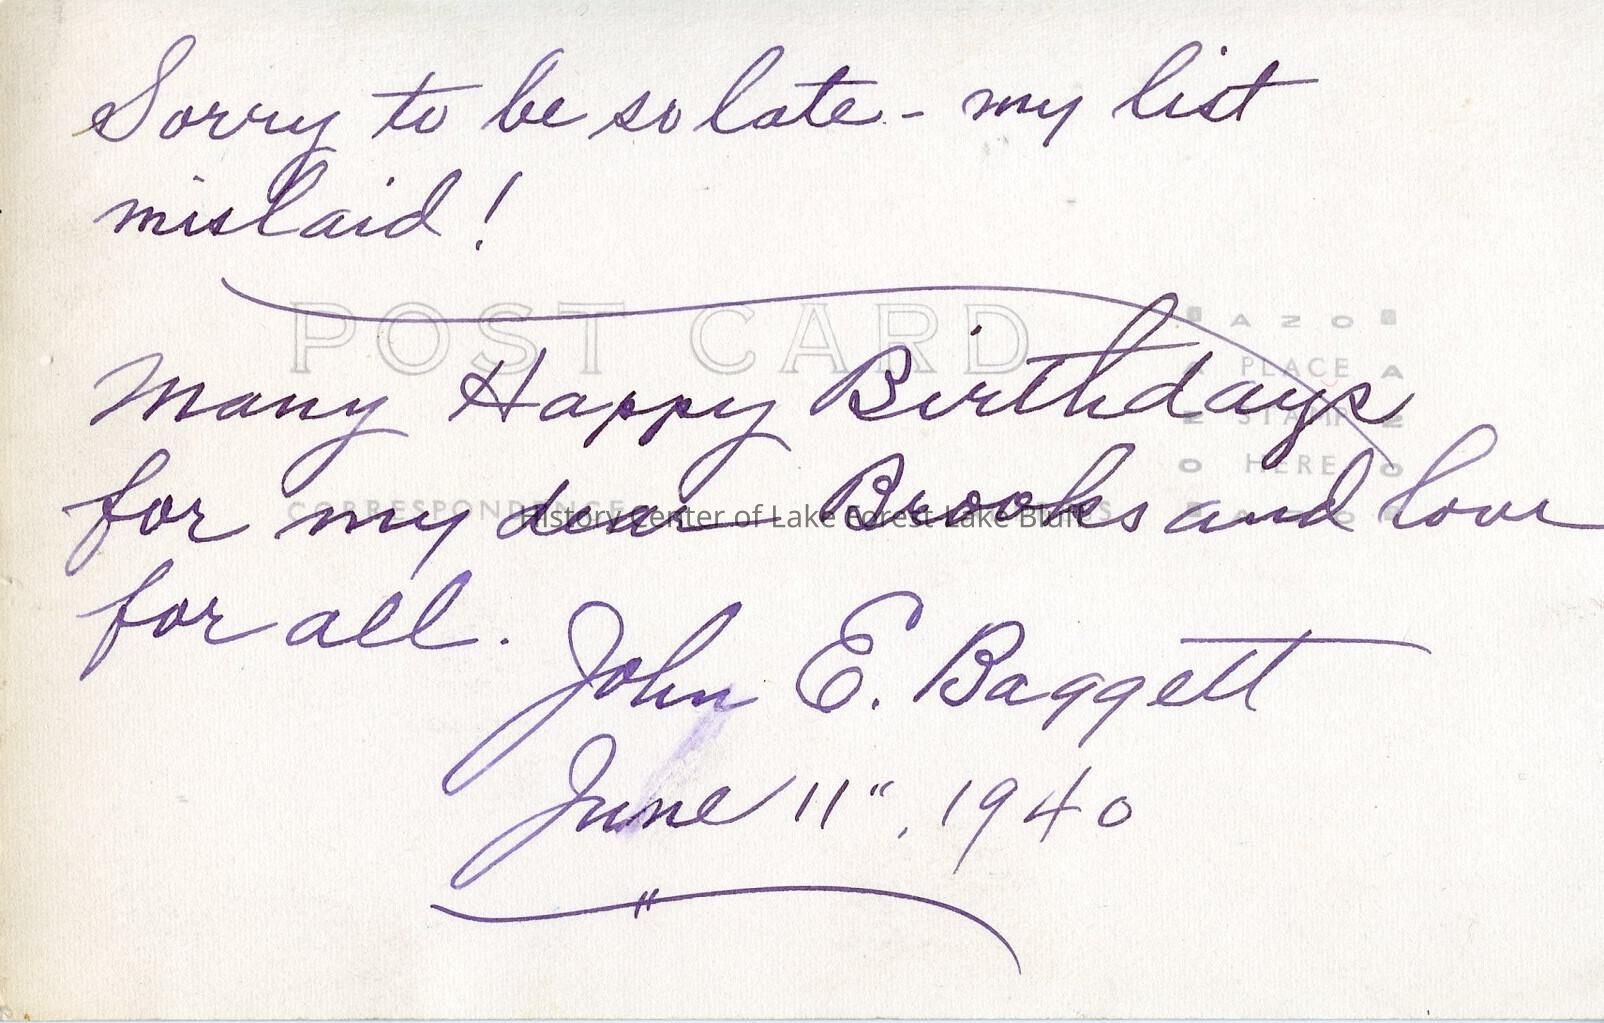 Sorry to be so late - my list
mislaid!
POST CARD
AZO
PLACE
STAMP
HERE
Many Happy Birthdays
for my dear Brooks and love
CORRESPONDENCE
History Center of Lake Forest-Lake Bluff
for all.
John E. Baggett
June 11", 1940
"